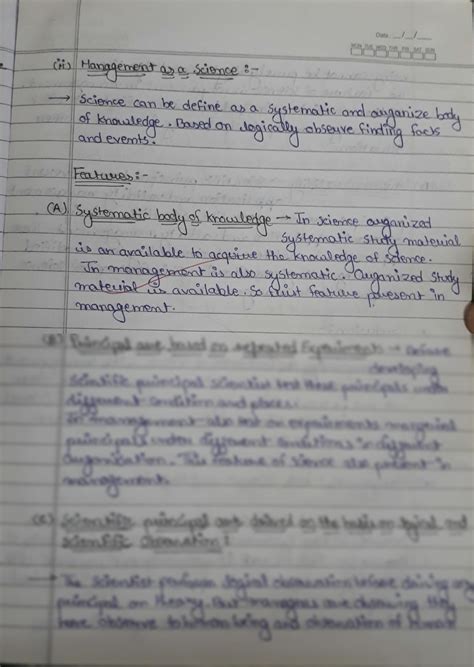 Date: __/__/__
MON TUE WED THU FRI SAT SUN
(ii) Management as a science :-
→ Science can be define as a systematic and organize body
of knowledge. Based on logically observe finding facts
and events.
Features:-
(A) Systematic body of knowledge → In science organized
systematic study material
is an available to acquire the knowledge of science.
In management is also systematic. Organized study
material is available. So first feature present in
management.
(B) Principal are based on repeated Experiments → Before
developing
Scientific principal scientist test these principals under
different condition and places.
In management also test on experiments
principals under different conditions in different
organisation. This feature of science also present in
management.
(C) Scientific principal are on the basis on logical and
scientific observation:
→ The scientist logical observation before any
principal on theory. But managers are they
have observe to human being and observation of human